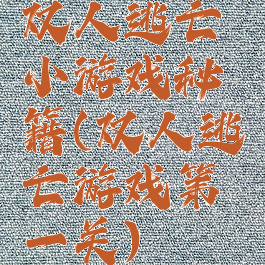 双人逃亡
小游戏秘
籍(双人逃
亡游戏第
一关)